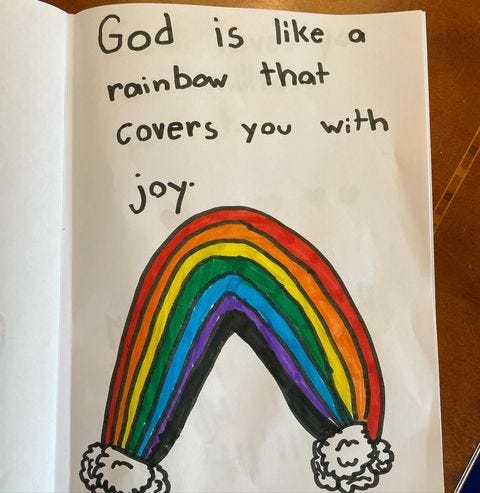 God is like a
rainbow that
covers you with
joy.